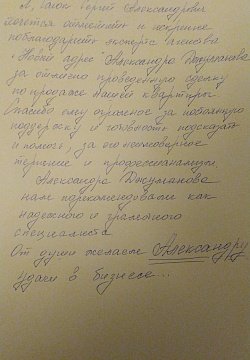 Я, Сергей Александрович
хочется отметить и искренне
поблагодарить эксперта агенства
"Новый адрес" Александра Джуманова
за отлично проведенную сделку
по продаже нашей квартиры.
Спасибо ему огромное за поборотную
поддержку и готовность подсказать
и помочь, за его неимоверное
терпение и профессионализм.
Александра Джуманова
нам порекомендовали как
надежного и грамотного
специалиста.
От души желаем Александру
удачи в бизнесе...